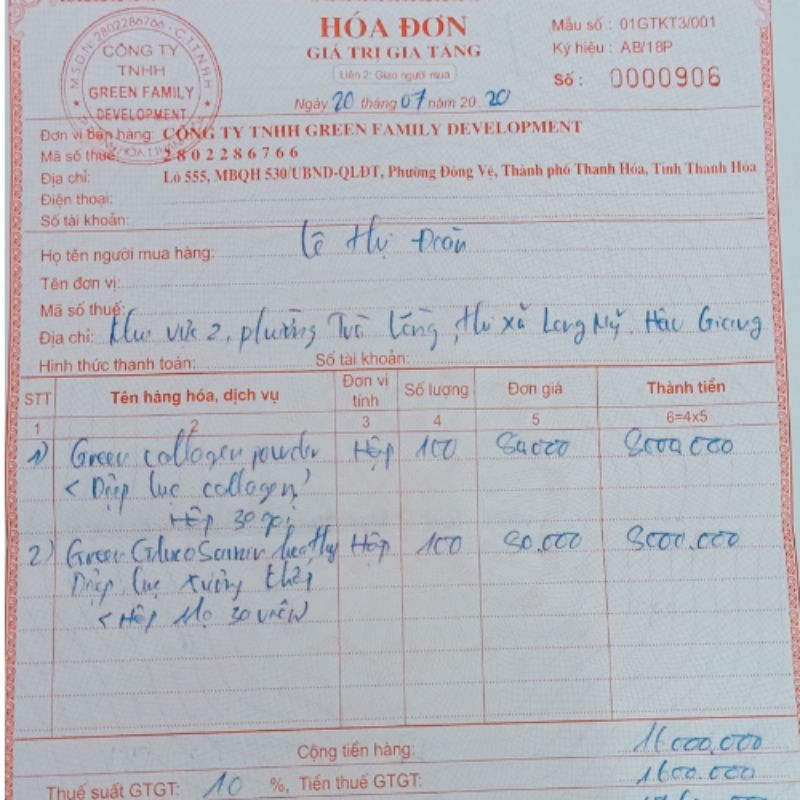 HÓA ĐƠN
GIÁ TRỊ GIA TĂNG
Liên 2: Giao người mua
Ngày 20 tháng 07 năm 2020
Mẫu số : 01GTKT3/001
Ký hiệu : AB/18P
Số : 0000906
M.S.D.N: 2802286766 - C.T.T.N.H.H
CÔNG TY
TNHH
GREEN FAMILY
DEVELOPMENT
Đơn vị bán hàng: CÔNG TY TNHH GREEN FAMILY DEVELOPMENT
Mã số thuế: 2802286766
Địa chỉ: Lô 555, MBQH 530/UBND-QLĐT, Phường Đông Vệ, Thành phố Thanh Hóa, Tỉnh Thanh Hóa
Điện thoại:
Số tài khoản:
Họ tên người mua hàng: Lê Thị Đoàn
Tên đơn vị:
Mã số thuế:
Địa chỉ: Khu vực 2, phường Trà Lồng, thị xã Long Mỹ. Hậu Giang
Hình thức thanh toán: Số tài khoản:
STT Tên hàng hóa, dịch vụ Đơn vị tính Số lượng Đơn giá Thành tiền
1 2 3 4 5 6=4x5
1) Green collagen powder Hộp 100 80.000 8000.000
< Diệp lục collagen)
Hộp 30 gói
2) Green GlucoSamin healthy Hộp 100 80.000 8000.000
Diệp lục xương khớp
< Hộp 30 viên
Cộng tiền hàng: 16.000.000
Thuế suất GTGT: 10 %, Tiền thuế GTGT: 1.600.000